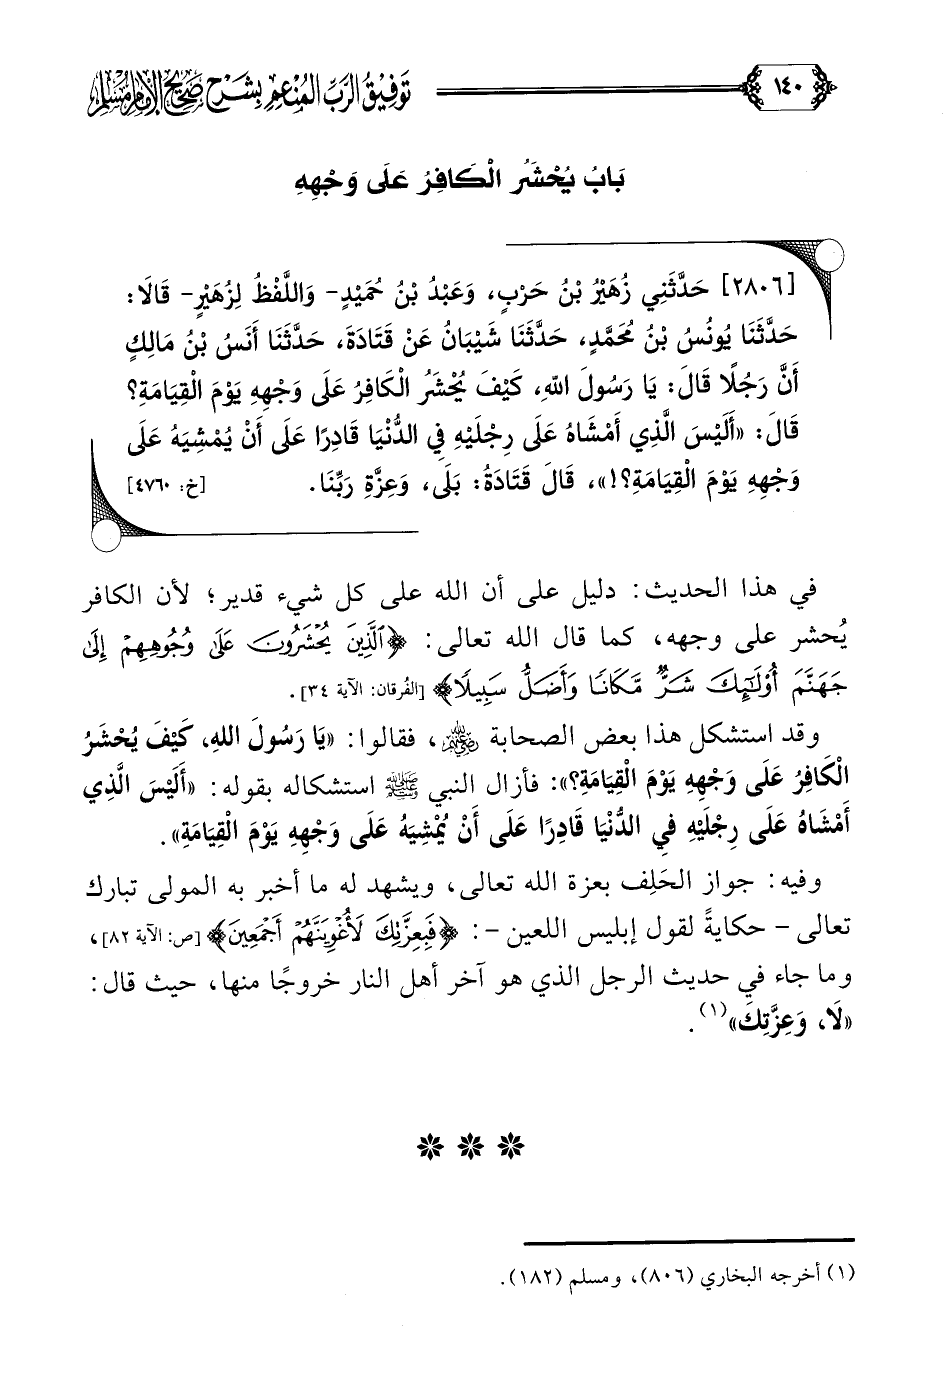 ١٤٠
تَوفِيقُ الرَّبِّ المُنْعِمِ بِشَرْحِ صَحِيحِ الإِمَامِ مُسْلِمٍ
بَابُ يُحْشَرُ الْكَافِرُ عَلَى وَجْهِهِ
[٢٨٠٦] حَدَّثَنِي زُهَيْرُ بْنُ حَرْبٍ، وَعَبْدُ بْنُ حُمَيْدٍ- وَاللَّفْظُ لِزُهَيْرٍ- قَالَا:
حَدَّثَنَا يُونُسُ بْنُ مُحَمَّدٍ، حَدَّثَنَا شَيْبَانُ عَنْ قَتَادَةَ، حَدَّثَنَا أَنَسُ بْنُ مَالِكٍ
أَنَّ رَجُلًا قَالَ: يَا رَسُولَ اللهِ، كَيْفَ يُحْشَرُ الْكَافِرُ عَلَى وَجْهِهِ يَوْمَ الْقِيَامَةِ؟
قَالَ: «أَلَيْسَ الَّذِي أَمْشَاهُ عَلَى رِجْلَيْهِ فِي الدُّنْيَا قَادِرًا عَلَى أَنْ يُمْشِيَهُ عَلَى
وَجْهِهِ يَوْمَ الْقِيَامَةِ؟!»، قَالَ قَتَادَةُ: بَلَى، وَعِزَّةِ رَبِّنَا. [خ: ٤٧٦٠]
في هذا الحديث: دليل على أن الله على كل شيء قدير؛ لأن الكافر
يُحشر على وجهه، كما قال الله تعالى: ﴿ٱلَّذِينَ يُحْشَرُونَ عَلَىٰ وُجُوهِهِمْ إِلَىٰ
جَهَنَّمَ أُوْلَـٰٓئِكَ شَرٌّ مَّكَانًا وَأَضَلُّ سَبِيلًا﴾ [الفُرقان: الآية ٣٤].
وقد استشكل هذا بعض الصحابة رضي الله عنهم، فقالوا: «يَا رَسُولَ اللهِ، كَيْفَ يُحْشَرُ
الْكَافِرُ عَلَى وَجْهِهِ يَوْمَ الْقِيَامَةِ؟»: فأزال النبي ﷺ استشكاله بقوله: «أَلَيْسَ الَّذِي
أَمْشَاهُ عَلَى رِجْلَيْهِ فِي الدُّنْيَا قَادِرًا عَلَى أَنْ يُمْشِيَهُ عَلَى وَجْهِهِ يَوْمَ الْقِيَامَةِ».
وفيه: جواز الحَلِف بعزة الله تعالى، ويشهد له ما أخبر به المولى تبارك
تعالى- حكايةً لقول إبليس اللعين -: ﴿فَبِعِزَّتِكَ لَأُغْوِيَنَّهُمْ أَجْمَعِينَ﴾ [ص: الآية ٨٢]،
وما جاء في حديث الرجل الذي هو آخر أهل النار خروجًا منها، حيث قال:
«لَا، وَعِزَّتِكَ»(١).
(١) أخرجه البخاري (٨٠٦)، ومسلم (١٨٢).